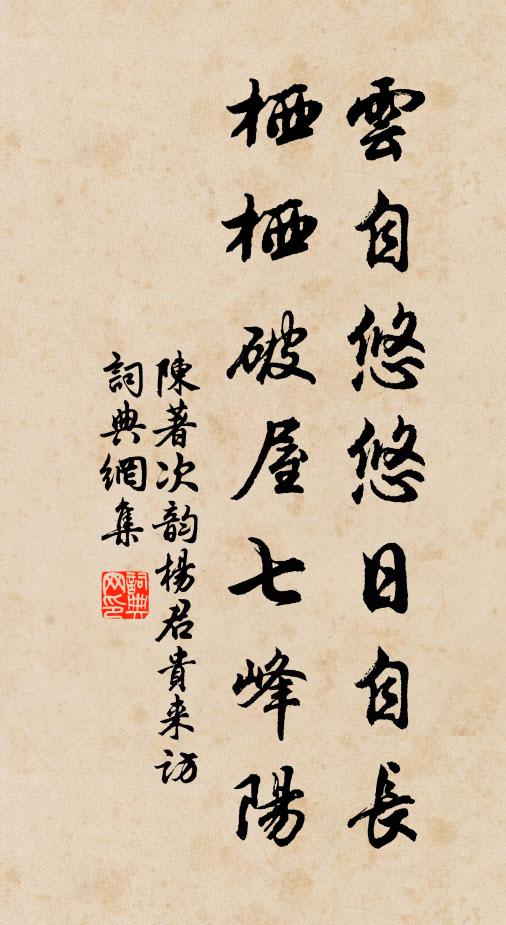 雲自悠悠日自長
栖栖破屋七峰陽
陳著次韵楊君貴来访
詞典網集
詞典网印